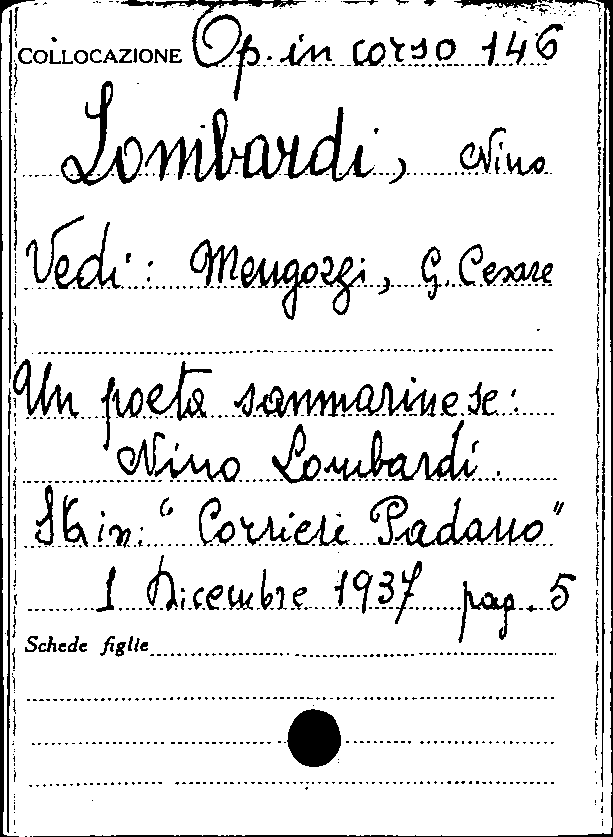 COLLOCAZIONE Op. in corso 146
Lombardi, Nino
Vedi: Mengozzi, G. Cesare
Un poeta sanmarinese:
Nino Lombardi.
Sta in: "Corriere Padano"
1 Dicembre 1937 pag. 5
Schede figlie